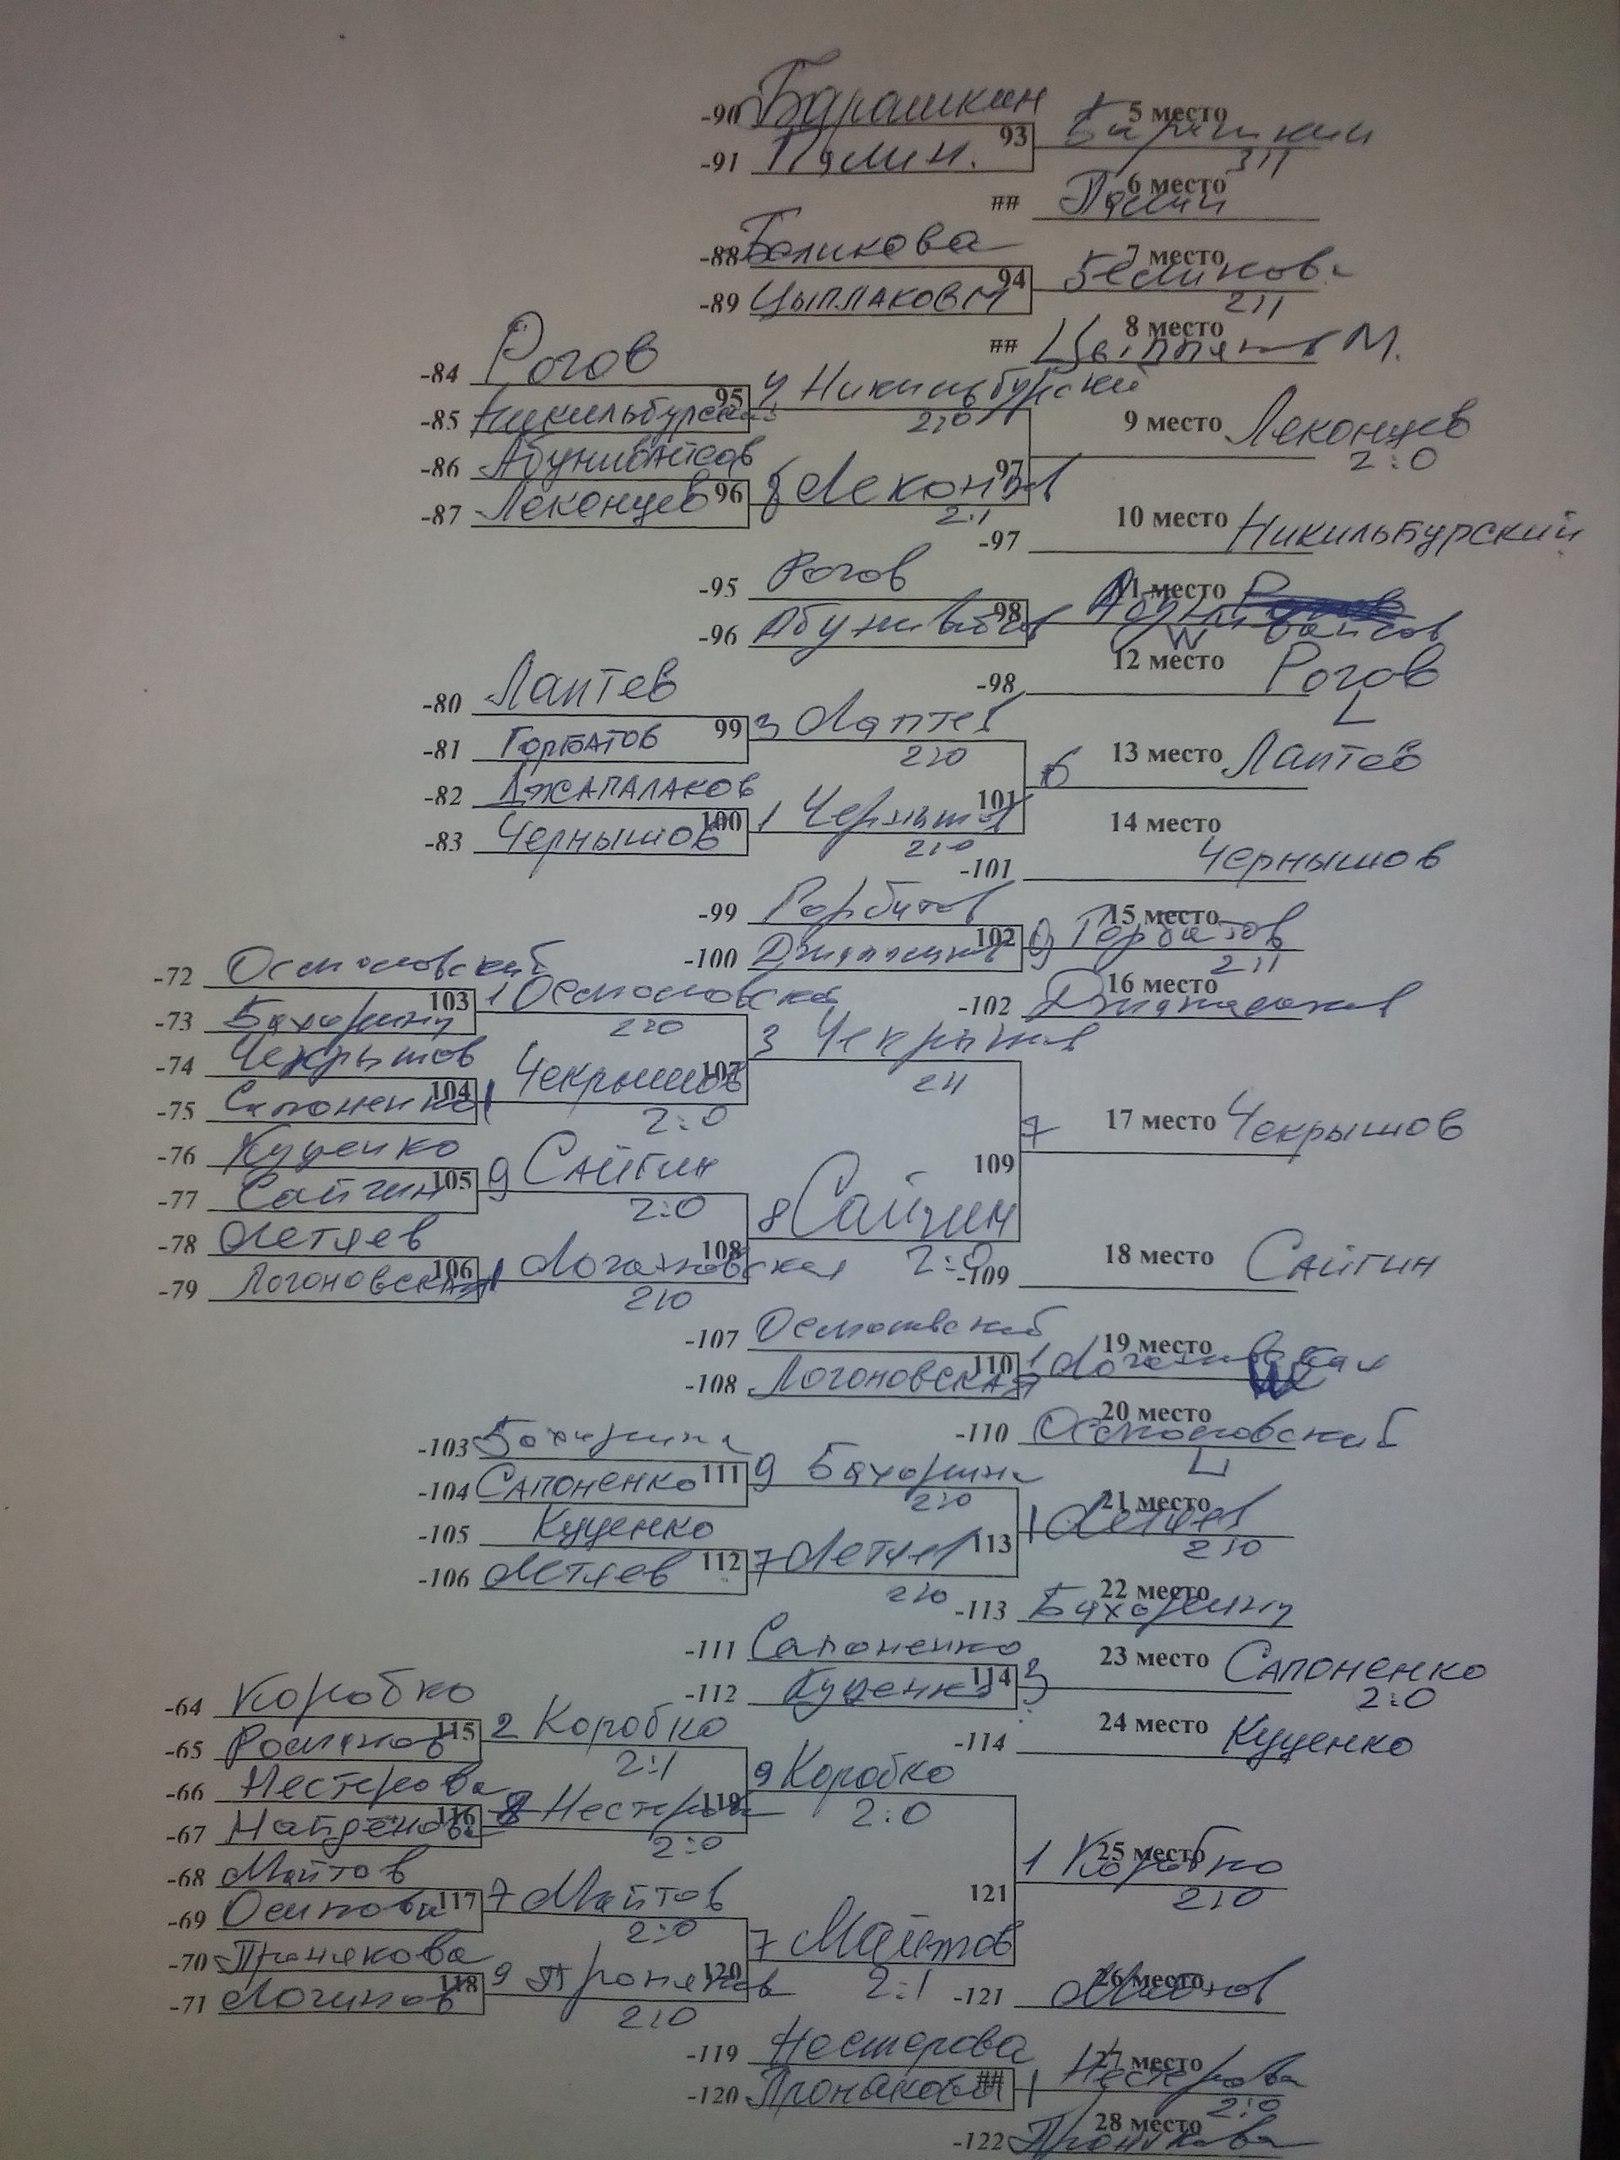 -90 Барашкин 5 место
93
-91 Пямин.
3:1
6 место
##
-88 Беликова 7 место
94 Беликова
-89 Цыплаков М 2:1
8 место
## М.
-84 Рогов
95 Никильбурский
-85 Никильбурский 2:0
9 место Леконцев
2:0
-86
97
96 8 Леконцев
-87 Леконцев 2:1
10 место Никильбурский
-97
-95 Рогов 11 место
98
-96 W
12 место Рогов
-98 L
-80 Лаптев
99 3 Лаптев
-81 Горбатов 2:0
13 место Лаптев
6
-82 Джапалаков
101
100 1 Чернышов
-83 Чернышов 2:0
14 место Чернышов
-101
-99 Горбатов 15 место
102 9 Горбатов
-100 2:1
16 место
-102
-72 Осмоловский
103 1 Осмоловский
-73 Бахорина 2:0
3
-74 Чекрышов 2:1
107
104 1 Чекрышов
-75 Сапоненко 2:0
7 17 место Чекрышов
-76 Куценко
109
105 9 Сайгин
-77 Сайгин 2:0
8 Сайгин
-78 Летяев 2:0
108
106 1 Логоновская
-79 Логоновская 2:0
18 место Сайгин
-109
-107 Осмоловский 19 место
110 1 Логоновская
-108 Логоновская W
20 место
-110 Осмоловский
L
-103 Бахорина
111 9 Бахорина
-104 Сапоненко 2:0
21 место
1 Летяев
-105 Куценко 2:0
113
112 7 Летяев
-106 Летяев 2:0
22 место
-113 Бахорина
-111 Сапоненко 23 место Сапоненко
114 3
-112 Куценко 2:0
24 место Куценко
-114
-64 Коробко
115 2 Коробко
-65 2:1
9 Коробко
-66 Нестерова 2:0
119
116 8 Нестерова
-67 Найденова 2:0
25 место
1 Коробко
-68 Майтов 2:0
121
117 7 Майтов
-69 Осипова 2:0
7 Майтов
-70 Пронякова 2:1
120
118 9
-71 Логинов 2:0
26 место
-121
-119 Нестерова 27 место
## 1 Нестерова
-120 Пронякова 2:0
28 место
-122 Пронякова